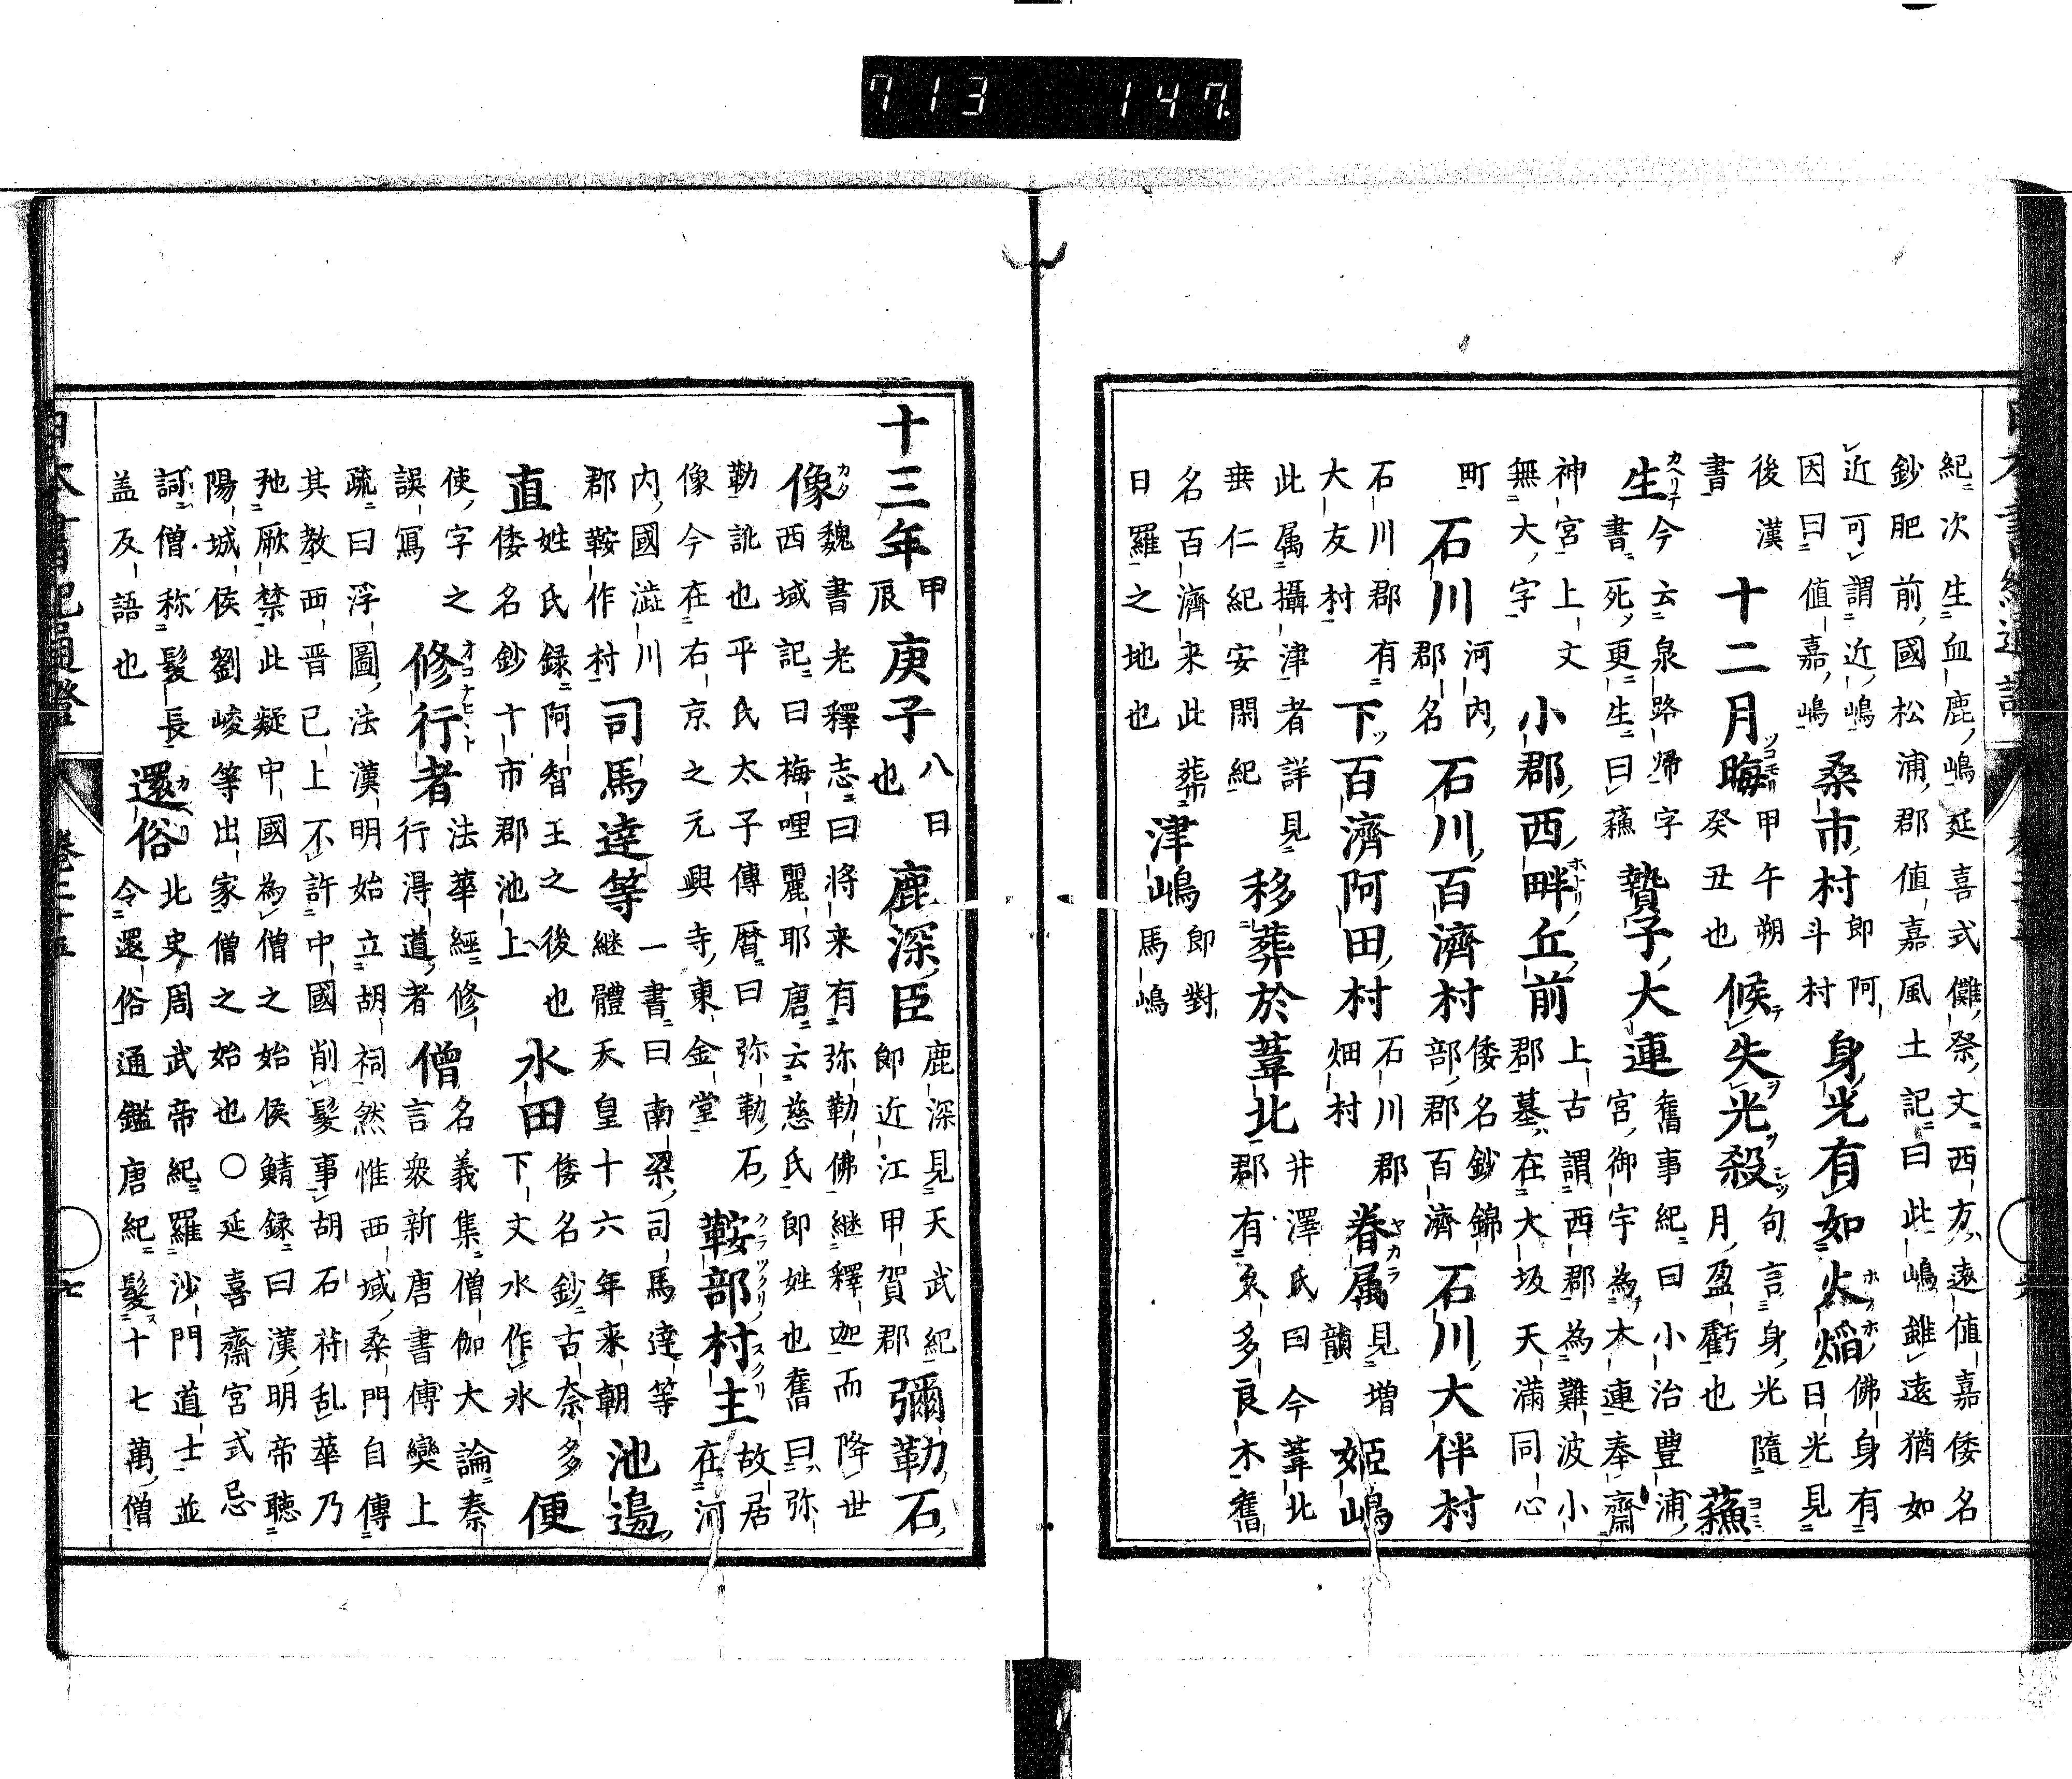 713 147.
紀次生血鹿嶋延喜式儺祭文西方遠値嘉倭名
鈔肥前國松浦郡値嘉風土記曰此嶋雖遠猶如
近可謂近嶋
因曰値嘉嶋
桑市村
即阿
斗村
身光有如火焰
佛身有
日光見
後漢
書
十二月晦
甲午朔
癸丑也
候失光殺
句言身光隨
月盈虧也
蘓
生
今云泉路帰字
書死更生曰蘓
贄子大連
舊事紀曰小治豊浦
宮御宇為大連奉齋
神宮上文
無大字
小郡西畔丘前
上古謂西郡為難波小
郡墓在大坂天滿同心
町
石川
河内
郡名
石川百濟村
倭名鈔錦
部郡百濟
石川大伴村
石川郡有
大友村
下百濟阿田村
石川郡
畑村
眷属
見增
韻
姬嶋
此属攝津者詳見
垂仁紀安閑紀
移葬於葦北
井澤氏曰今葦北
郡有久多良木舊
名百濟来此葬
日羅之地也
津嶋
即對
馬嶋
十三年
甲
辰
庚子
八日
也
鹿深臣
鹿深見天武紀
即近江甲賀郡
彌勒石
像
魏書老釋志曰將来有弥勒佛継釋迦而降世
西域記曰梅哩麗耶唐云慈氏即姓也舊曰弥
勒訛也平氏太子傳曆曰弥勒石
像今在右京之元興寺東金堂
鞍部村主
故居
在河
内國澁川
郡鞍作村
司馬達等
一書曰南梁司馬達等
継體天皇十六年来朝
池邊
直
姓氏録阿智王之後也
倭名鈔十市郡池上
氷田
倭名鈔古奈多
下文水作氷
便
使字之
誤寫
修行者
法華經修
行淂道者
僧
名義集僧伽大論秦
言衆新唐書傳奕上
疏曰浮圖法漢明始立胡祠然惟西域桑門自傳
其教西晋已上不許中國削髮事胡石苻乱華乃
弛厥禁此疑中國為僧之始侯鯖録曰漢明帝聴
陽城侯劉峻等出家僧之始也○延喜齋宮式忌
詞僧称髮長
盖反語也
還俗
北史周武帝紀羅沙門道士並
令還俗通鑑唐紀髮十七萬僧
日本書紀通證
卷二十五
七